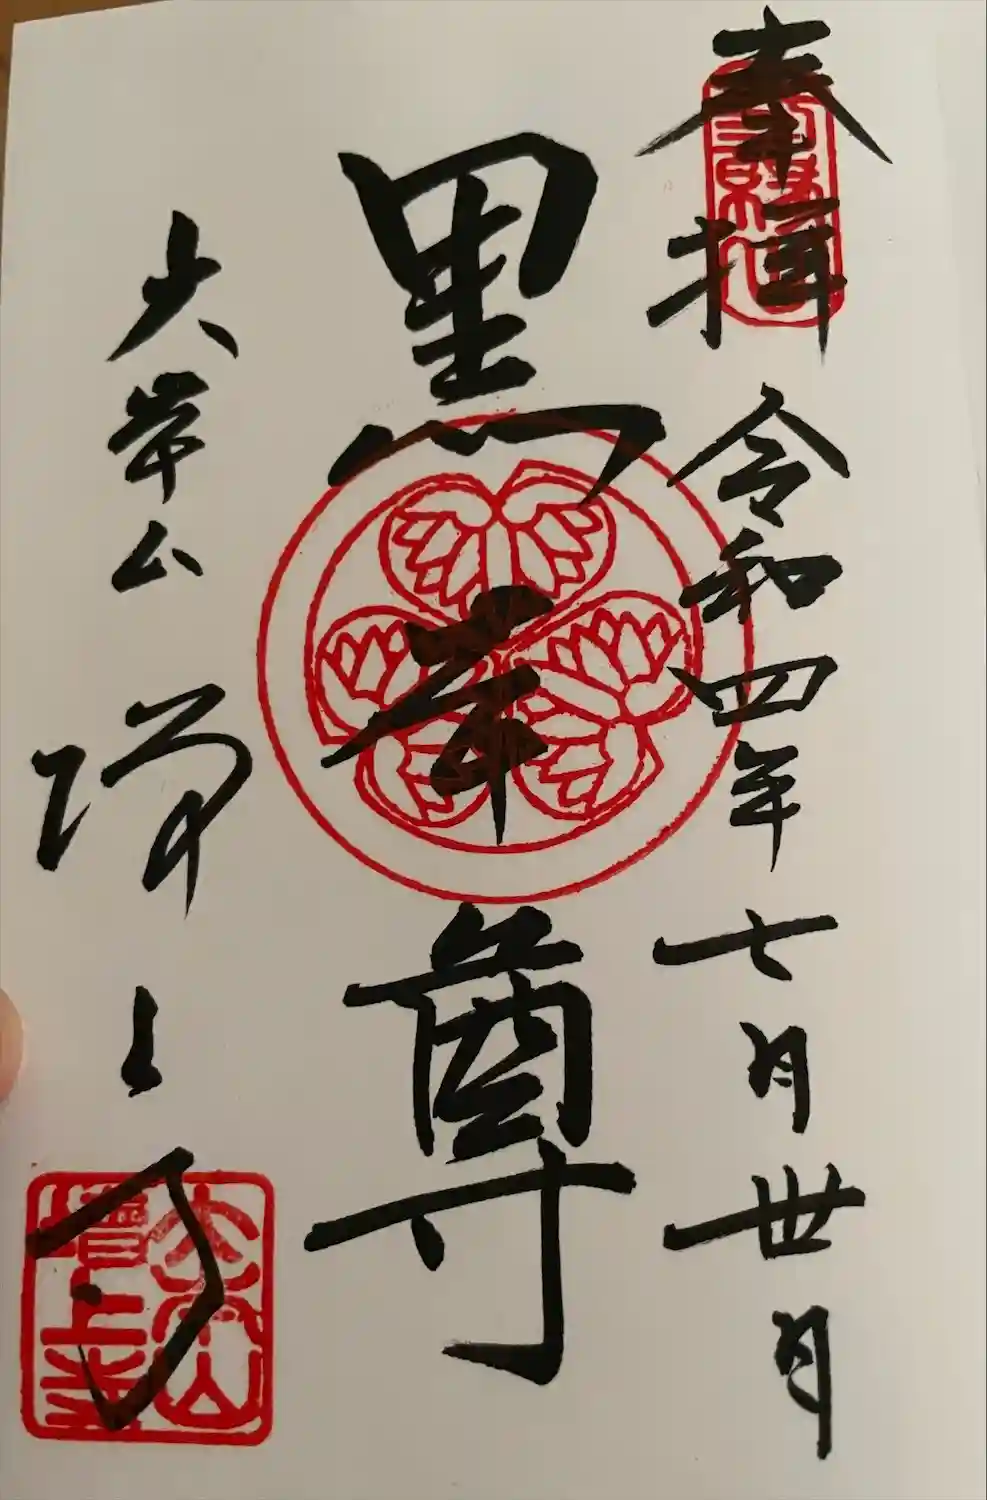 奉拝 令和四年七月卅日
黒本尊
大本山 増上寺
大本山増上寺